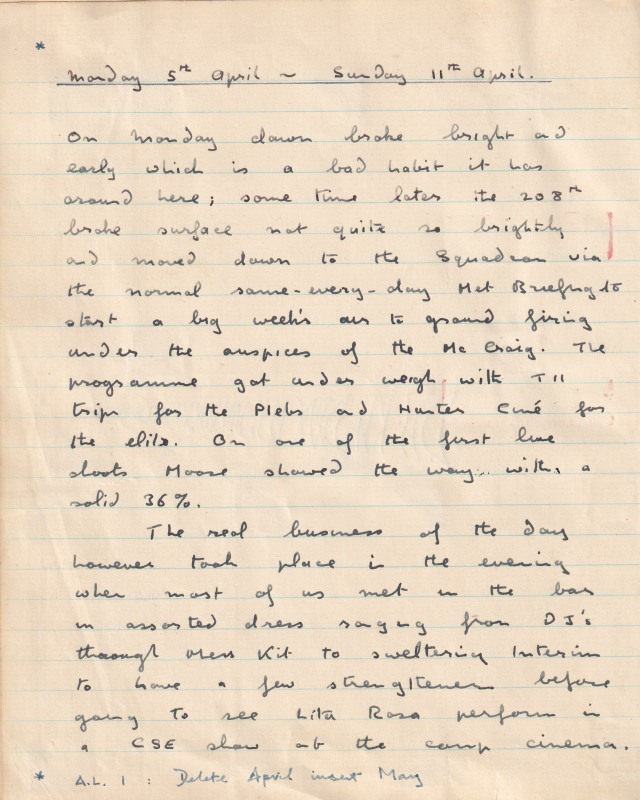 *
Monday 5th April ~ Sunday 11th April.
On Monday dawn broke bright and
early which is a bad habit it has
around here; some time later the 208th
broke surface not quite so brightly
and moved down to the Squadron via
the normal same-every-day Met Briefing to
start a big week's air to ground firing
under the auspices of the Mc Craig. The
programme got under weigh with T 11
trips for the Plebs and Hunter Ciné for
the elite. On one of the first live
shoots Moose showed the way... with a
solid 36%.
The real business of the day
however took place in the evening
when most of us met in the bar
in assorted dress ranging from DJ's
through Mess Kit to sweltering Interim
to have a few strengtheners before
going to see Lita Rosa perform in
a CSE show at the camp cinema.
* A.L. 1 : Delete April insert May